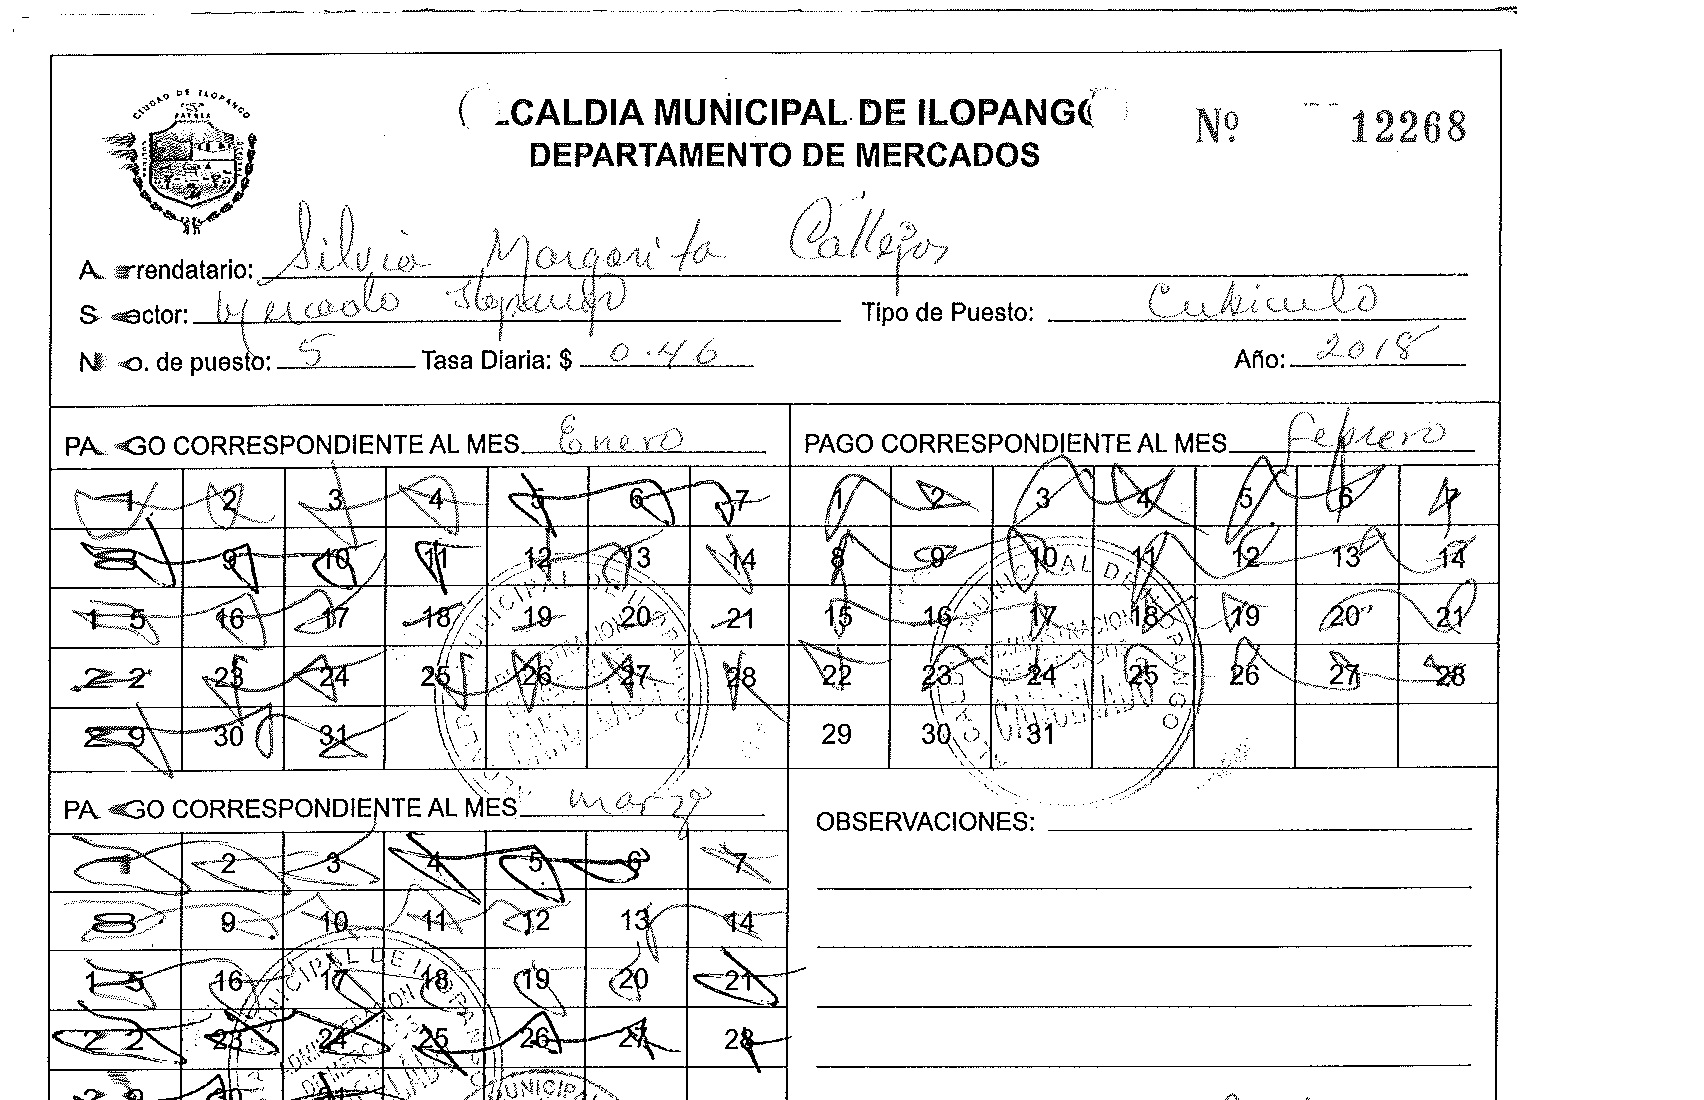 CIUDAD DE ILOPANGO
PATRIA
ALCALDIA MUNICIPAL DE ILOPANGO
DEPARTAMENTO DE MERCADOS
Nº 12268
Arrendatario: Silvia Margarita Callejos
Sector: Mercado Ilopango Tipo de Puesto: Cubiculo
No. de puesto: 5 Tasa Diaria: $ 0.46 Año: 2018
PAGO CORRESPONDIENTE AL MES Enero
1 2 3 4 5 6 7
8 9 10 11 12 13 14
15 16 17 18 19 20 21
22 23 24 25 26 27 28
29 30 31
PAGO CORRESPONDIENTE AL MES febrero
1 2 3 4 5 6 7
8 9 10 11 12 13 14
15 16 17 18 19 20 21
22 23 24 25 26 27 28
29 30 31
CANCELADO
PAGO CORRESPONDIENTE AL MES marzo
1 2 3 4 5 6 7
8 9 10 11 12 13 14
15 16 17 18 19 20 21
22 23 24 25 26 27 28
29 30 31
OBSERVACIONES: